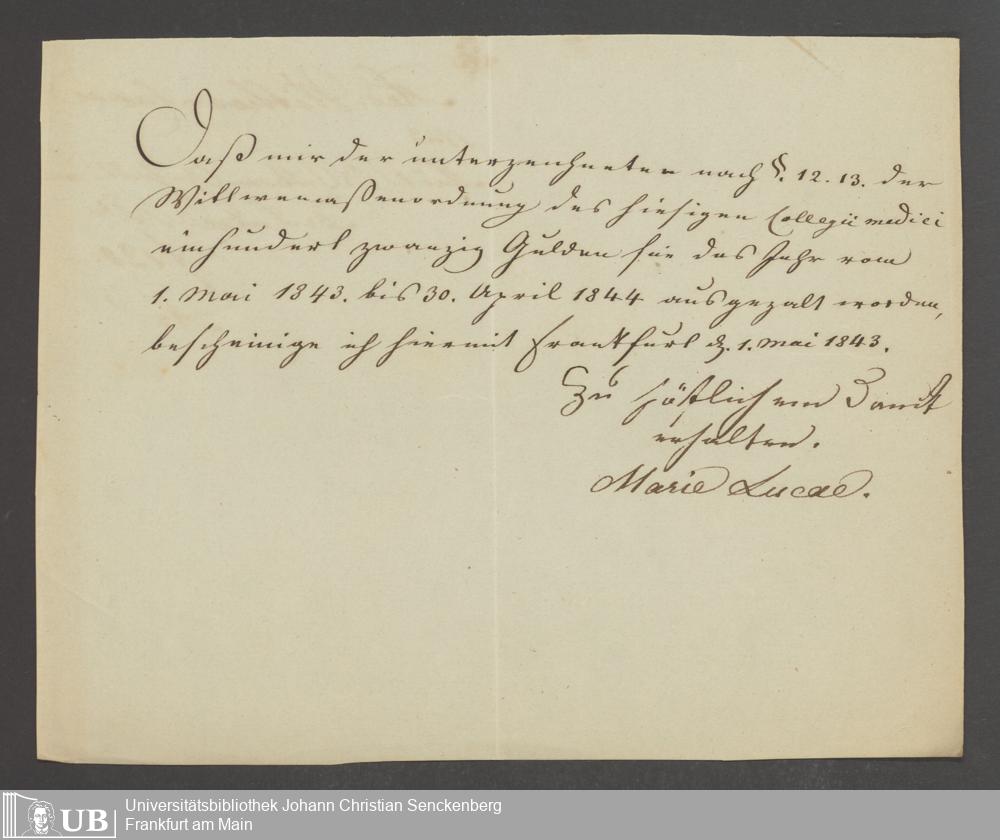 Daß mir der unterzeichneten nach §. 12. 13. der
Wittwencaßenordnung des hiesigen Collegii medici
einhundert zwanzig Gulden für das Jahr vom
1. Mai 1843. bis 30. April 1844 ausgezalt worden,
bescheinige ich hiermit Frankfurt d. 1. Mai 1843.
Zu höflichem Dank
erhalten.
Marie Lucae.
UB
Universitätsbibliothek Johann Christian Senckenberg
Frankfurt am Main